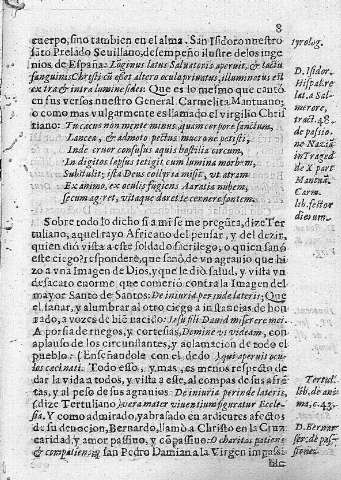 8
cuerpo, sino tambien en el alma. San Isidoro nuestro
sãto Prelado Sevillano, desempeño ilustre de los inge
nios de España: Lõginus latus Salvatoris aperuit, & tactu
sanguinis Christi cũ esset altero oculo privatus, illuminatus est
extra & intra lumine fidei: Que es lo mesmo que cantò
en sus versos nuestro General Carmelita Mantuano;
o como mas vulgarmente es llamado el virgilio Chris
tiano: Tu cæcus non mente minus, quam corpore sanctum,
Lancea, & admoto pectus mucrone petisti,
Inde cruor confusus aquis hastilia circum,
In digitos lapsus tetigit cum lumina morbem,
Subtulit; ista Deus collyria misit, ut atram
Ex animo, ex oculis fugiens nubem,
secum ageret, vitaque daret te cernere fontem.
Sobre todo lo dicho si a mi se me pregũta, dize Ter
tuliano, aquel rayo Africano del pensar, y del dezir,
quien diò vista a este soldado sacrilego; o quien sanò
este ciego? responderè, que sanò, de vn agrauio que hi
zo a vna Imagen de Dios, y que le diò salud, y vista vn
desacato enorme que cometiò contra la Imagen del
mayor Santo de Santos: De iniuria per inde lateris; Que
el sanar, y alumbrar al otro ciego a instancias de hon
rado, a vozes de biẽ nacido: Iesu fili David miserere mei.
A porfia de ruegos, y cortesias, Domine vt videam, con
aplauso de los circunstantes, y aclamacion de todo el
pueblo. (Enseñandole con el dedo) qui aperuit ocu
los cæcinati. Todo esso, y mas, es menos respecto de
dar la vida a todos, y vista a este, al compas de sus afrẽ
tas, y al peso de sus agrauios De iniuria perinde lateris,
(dize Tertuliano) vera mater viventium figuratur Eccle
sia. Y como admirado, y abrasado en ardientes afectos
de su deuocion, Bernardo, llamò a Christo en la Cruz
caridad, y amor passivo, y cõpassivo: O charitas patiens
& compatiens, y san Pedro Damiano a la Virgen impassi
ble
tyrolog.
D. Isidor.
Hispalẽ
lat. a Sal
merõ,
tract. 48.
de passio
ne
in Traged
de X part
Mantuã.
Carm.
lib. fastor
dierum.
Tertul.
lib. de ani
ma, c. 43.
D. Bernar
ser. de pas-
sione.